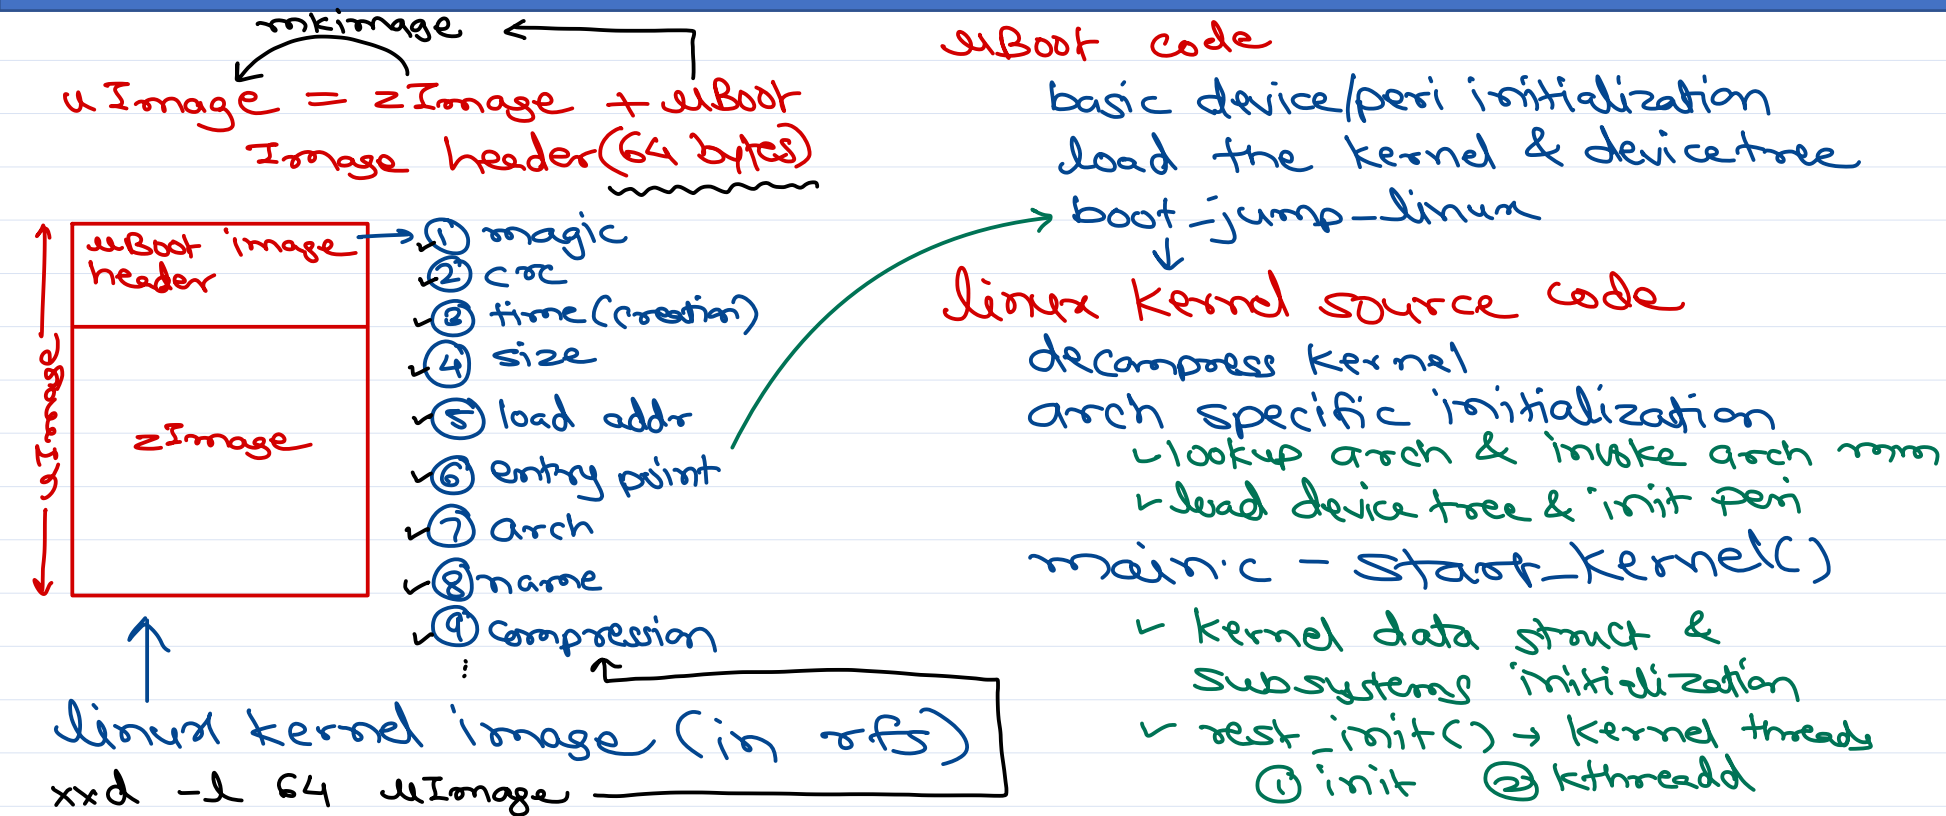 mkimage
uImage = zImage + uBoot
Image header (64 bytes)
uImage
uBoot image
header
zImage
① magic
② crc
③ time (creation)
④ size
⑤ load addr
⑥ entry point
⑦ arch
⑧ name
⑨ compression
⋮
linux kernel image (in rfs)
xxd -l 64 uImage
uBoot code
basic device/peri initialization
load the kernel & device tree
boot_jump_linux
linux kernel source code
decompress kernel
arch specific initialization
lookup arch & invoke arch mm
load device tree & init peri
main.c - start_kernel()
kernel data struct &
subsystems initialization
rest_init() → kernel threads
① init ② kthreadd